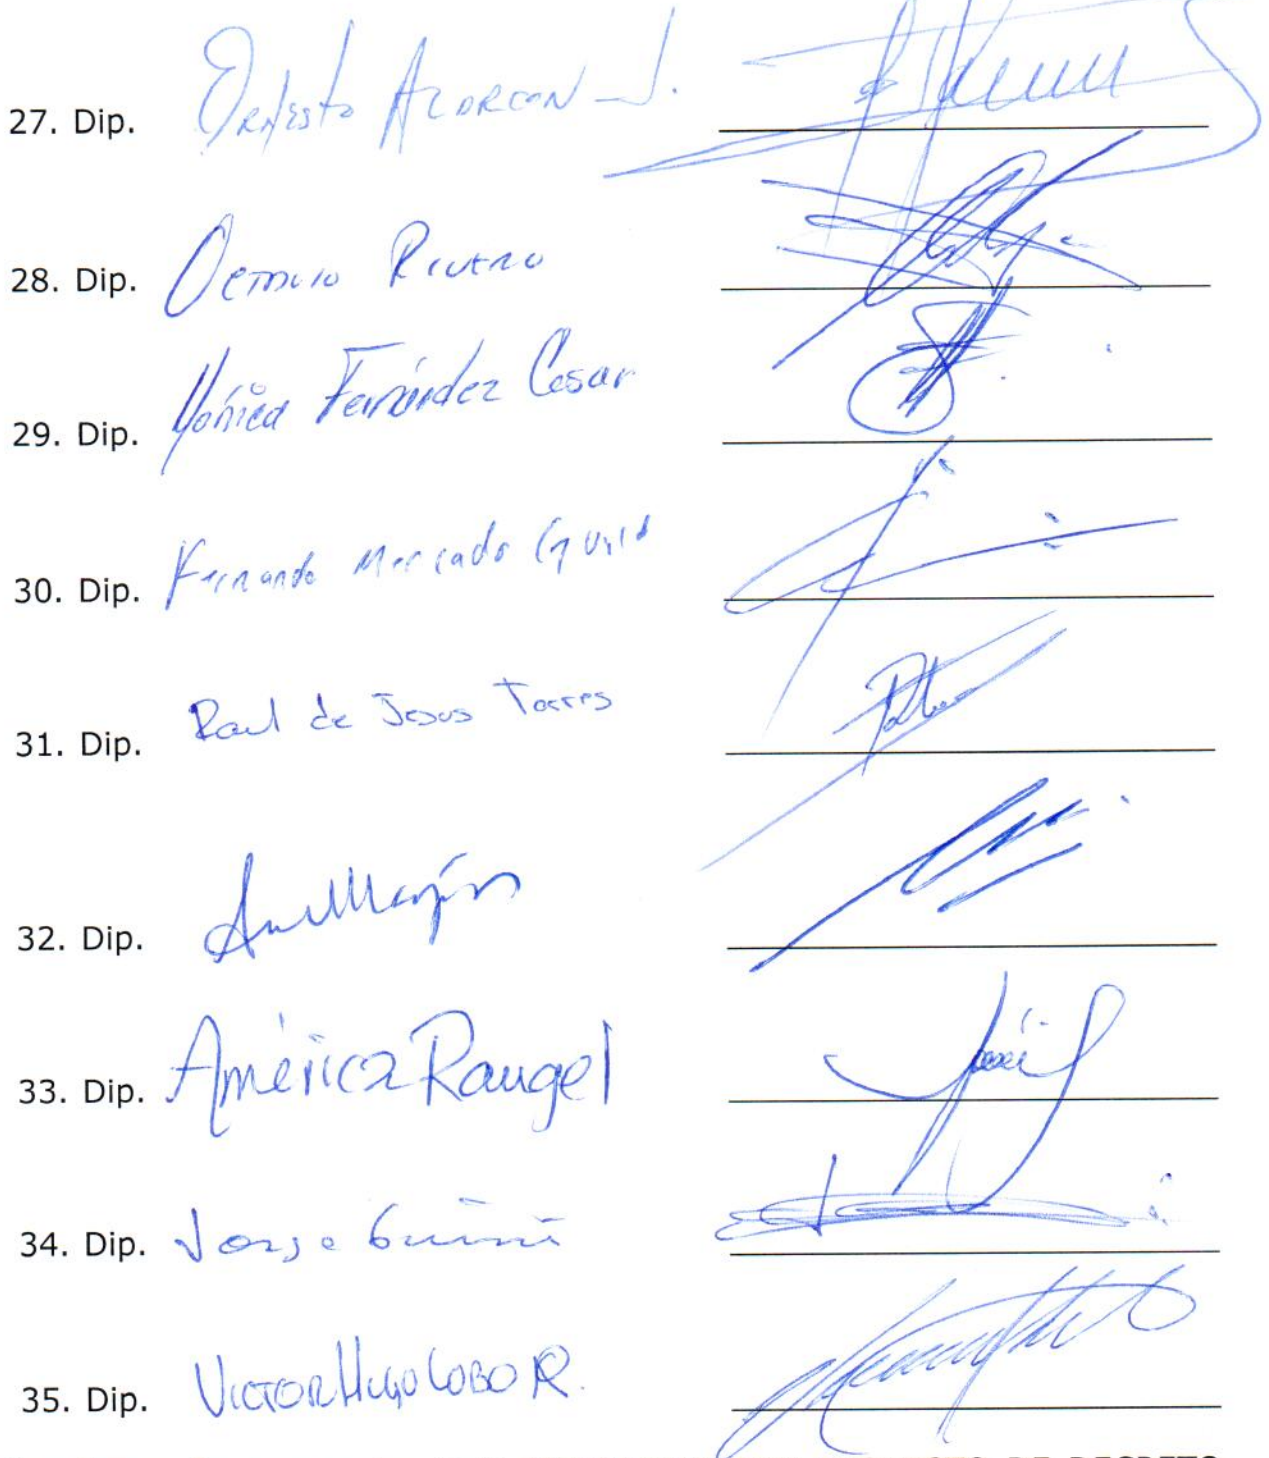 27. Dip. Ernesto Alarcon J.
28. Dip. Octavio Rivero
29. Dip. Mónica Fernández Cesar
30. Dip. Fernando Mercado Guaida
31. Dip. Raul de Jesus Torres
32. Dip.
33. Dip. América Rangel
34. Dip. Jorge Gaviño
35. Dip. VICTOR HUGO LOBO R.
DE DECRETO